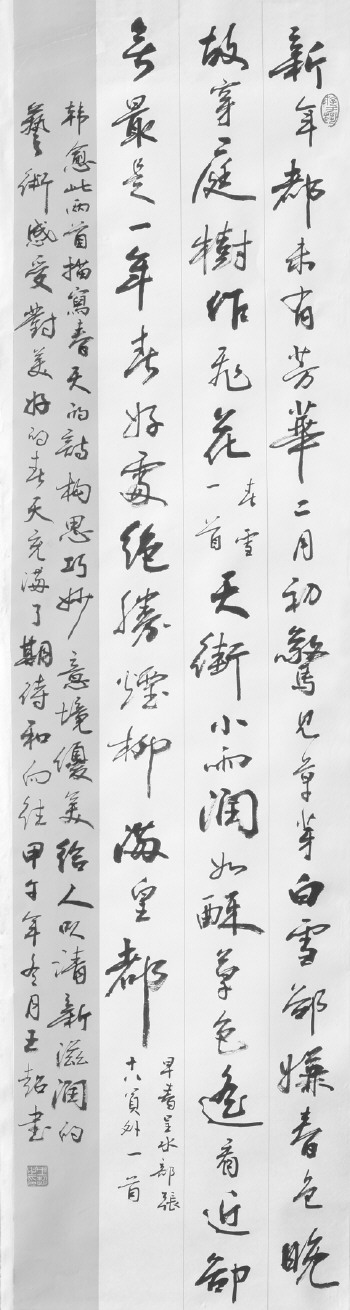 新年都未有芳華二月初驚見草芽白雪卻嫌春色晚
故穿庭樹作飛花
春雪
一首
天街小雨潤如酥草色遙看近卻
無最是一年春好處絕勝煙柳滿皇都
早春呈水部張
十八員外一首
韩愈此两首描寫春天的詩构思巧妙意境優美給人以清新滋潤的
藝術感受對美好的春天充滿了期待和向往甲午年冬月王書